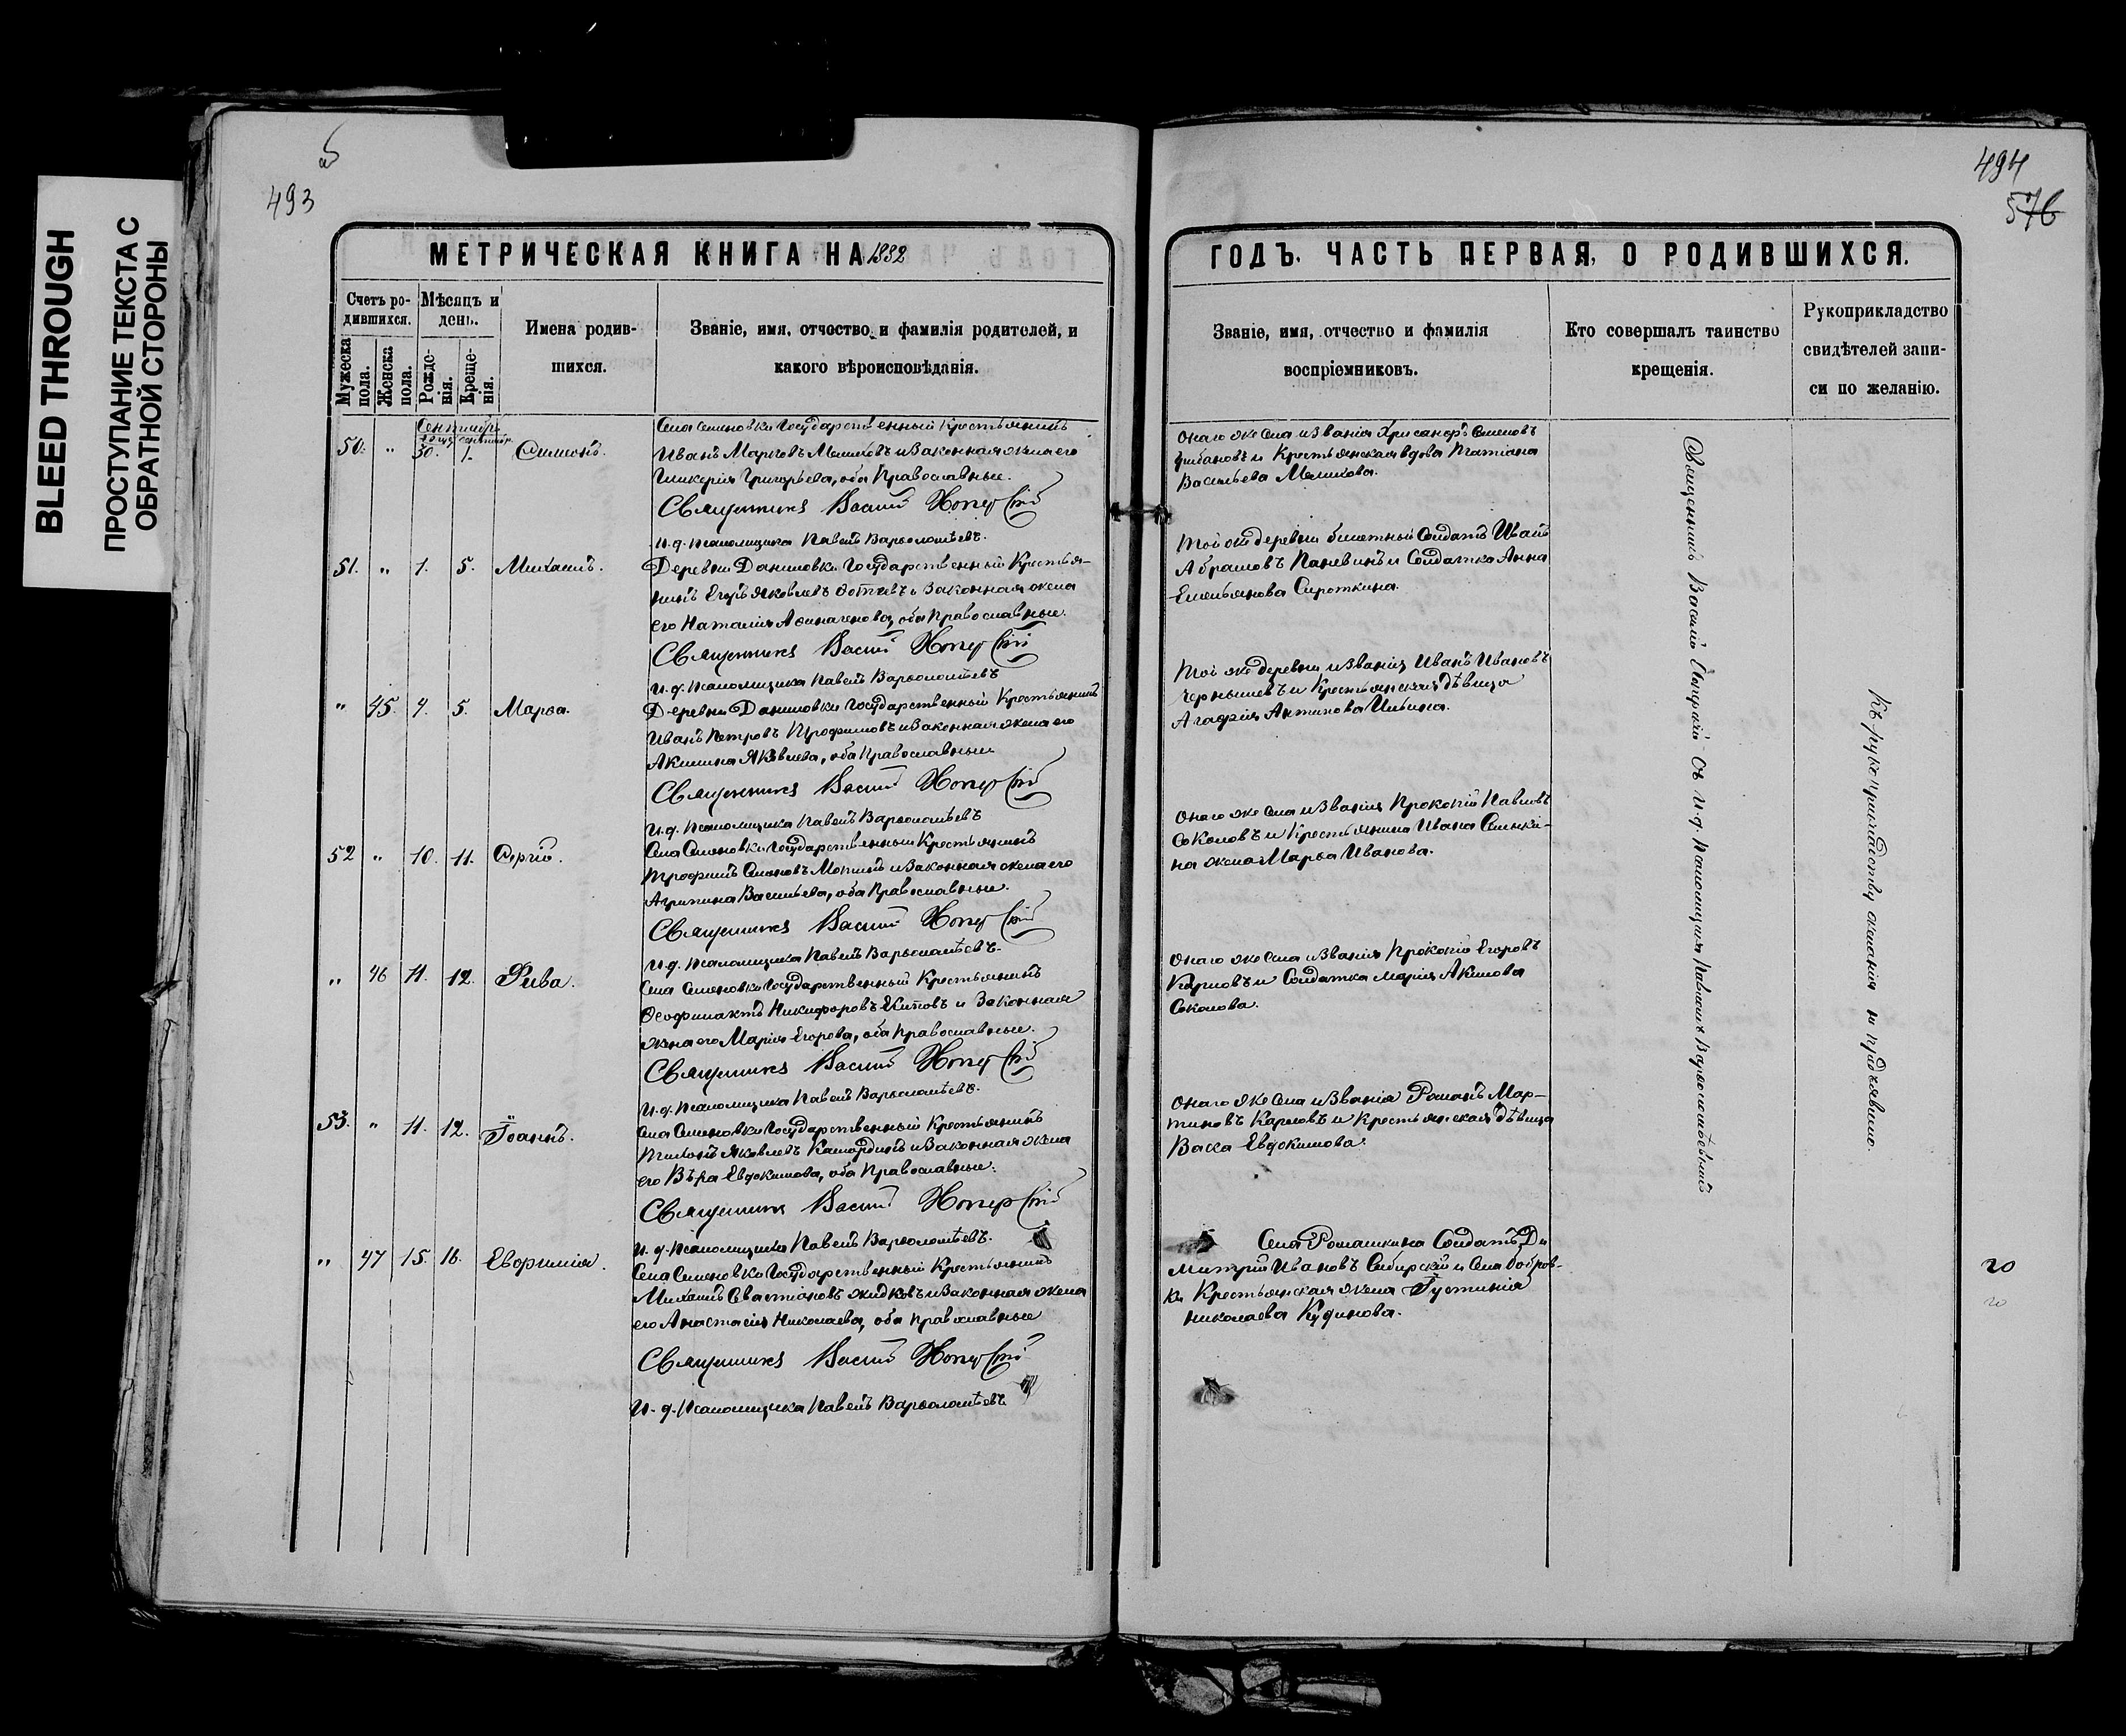 BLEED THROUGH
ПРОСТУПАНИЕ ТЕКСТА С
ОБРАТНОЙ СТОРОНЫ
493
494
576
МЕТРИЧЕСКАЯ КНИГА НА 1882
Счетъ ро-
дившихся.
Мужеска
пола.
Женска
пола.
Мѣсяцъ и
день.
Рожде-
нія.
Креще-
нія.
Имена родив-
шихся.
Званіе, имя, отчество, и фамилія родителей, и
какого вѣроисповѣданія.
Сентябрь
50. " 30. 1. Симеонъ.
Села Семеновки Государственный Крестьянинъ
Иванъ Марковъ Меликовъ и Законная жена его
Гликерія Григорьева, оба Православные.
Священникъ Василій
И. д. Псаломщика Павелъ Варѳоломѣевъ.
51. " 1. 5. Михаилъ.
Деревни Даниловки Государственный Крестья-
нинъ Егоръ Яковлевъ и Законная жена
его Наталія Аѳиногенова, оба Православные.
Священникъ Василій
И. д. Псаломщика Павелъ Варѳоломѣевъ
" 45. 4. 5. Марѳа.
Деревни Даниловки Государственный Крестьянинъ
Иванъ Петровъ Трофимовъ и Законная жена его
Акилина Яковлева, оба Православные
Священникъ Василій
И. д. Псаломщика Павелъ Варѳоломѣевъ
52 " 10. 11. Сергій.
Села Семеновки Государственный Крестьянинъ
Трофимъ Семеновъ и Законная жена его
Агрипина Васильева, оба Православные.
Священникъ Василій
И. д. Псаломщика Павелъ Варѳоломѣевъ.
" 46 11. 12. Фива.
Села Семеновки Государственный Крестьянинъ
Ѳеофилактъ Никифоровъ и Законная
жена его Марія Егорова, оба Православные.
Священникъ Василій
И. д. Псаломщика Павелъ Варѳоломѣевъ.
53. " 11. 12. Іоаннъ.
Села Семеновки Государственный Крестьянинъ
Тихонъ Яковлевъ и Законная жена
его Вѣра Евдокимова, оба Православные.
Священникъ Василій
И. д. Псаломщика Павелъ Варѳоломѣевъ.
" 47 15. 16. Евфимія.
Села Семеновки Государственный Крестьянинъ
Михаилъ Севастіановъ Жидковъ и Законная жена
его Анастасія Николаева, оба Православные
Священникъ Василій
И. д. Псаломщика Павелъ Варѳоломѣевъ
ГОДЪ. ЧАСТЬ ПЕРВАЯ, О РОДИВШИХСЯ.
Званіе, имя, отчество и фамилія
воспріемниковъ.
Кто совершалъ таинство
крещенія.
Рукоприкладство
свидѣтелей запи-
си по желанію.
Онаго же Села и Званія Хрисанфъ Семеновъ
и Крестьянская вдова Татіана
Васильева Меликова.
Той же деревни билетный Солдатъ Иванъ
Абрамовъ и Солдатка Анна
Емельянова Сироткина.
Той же деревни и Званія Иванъ Ивановъ
Чернышевъ и Крестьянская дѣвица
Агафія Антипова Ильина.
Онаго же Села и Званія Прокопій Павловъ
Соколовъ и Крестьянина Ивана
на жена Марѳа Иванова.
Онаго же Села и Званія Прокопій Егоровъ
Карповъ и Солдатка Марія Акимова
Соколова.
Онаго же Села и Званія Романъ Мар-
тиновъ Карповъ и Крестьянская дѣвица
Васса Евдокимова.
Села Ромашкина Солдатъ Ди
митрій Ивановъ Сибирскій и Села
Крестьянская жена Іустинія
Николаева Кудинова.
Священникъ Василій съ и. д. Псаломщика Павломъ Варѳоломѣевымъ
Къ рукоприкладству желанія не предъявлено.
20
20